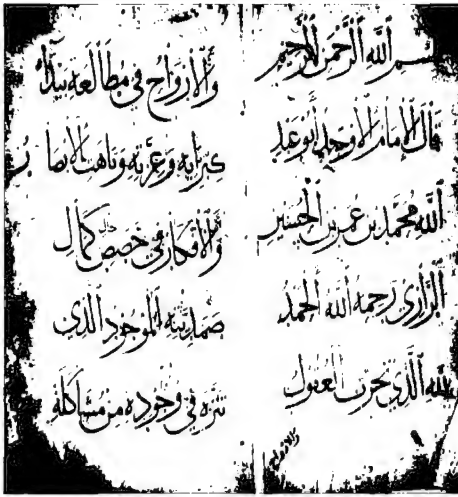 بسم الله الرحمن الرحيم
قال الإمام الأوحد أبو عبد
الله محمد بن عمر بن الحسين
الرازي رحمه الله الحمد
لله الذي تحيرت العقول
والارواح
والأرواح في مطالعة بيداء
كبريائه وعزته وتاهت الأبصار
والأفكار في كمال
صمديته الموجود الذي
تنزه في وجوده من مشاكلة